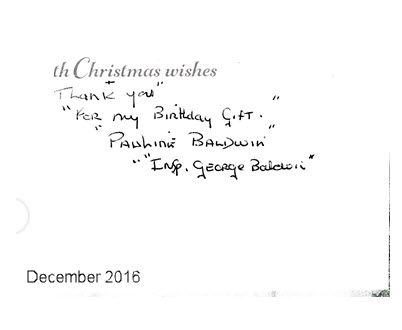 th Christmas wishes
Thank you"
"For my Birthday Gift."
"Pauline Baldwin"
""Insp. George Baldwin"
December 2016